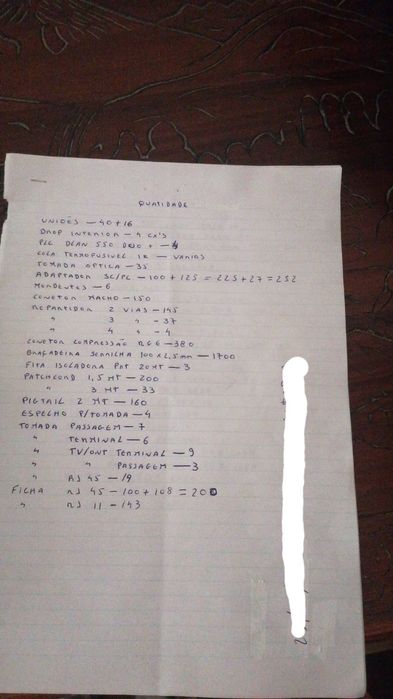 QUATIDADE
UNIÕES — 40+16
DROP INTERIOR — 4 CX'S
PLC DLAN 550 DUO + — 4
COLA TERMOFUSIVEL 1K — VARIOS
TOMADA OPTICA — 35
ADAPTADOR SC/PC — 100 + 125 = 225 + 27 = 252
— 6
CONETOR MACHO — 150
REPARTIDOR 2 VIAS — 145
" 3 " — 37
" 4 " — 4
CONETOR COMPRESSÃO RG6 — 380
BRAÇADEIRA SERRILHA 100 x 2,5 mm — 1700
FITA ISOLADORA PRT 20 MT — 3
PATCHCORD 1,5 MT — 200
" 3 MT — 33
PIGTAIL 2 MT — 160
ESPELHO P/TOMADA — 4
TOMADA PASSAGEM — 7
" TERMINAL — 6
" TV/ONT TERMINAL — 9
" " PASSAGEM — 3
" RJ 45 — 19
FICHA RJ 45 — 100 + 108 = 208
" RJ 11 — 143